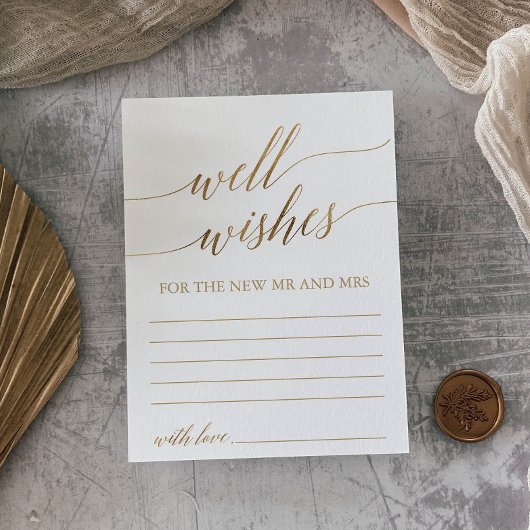 well
wishes
FOR THE NEW MR AND MRS
with love,